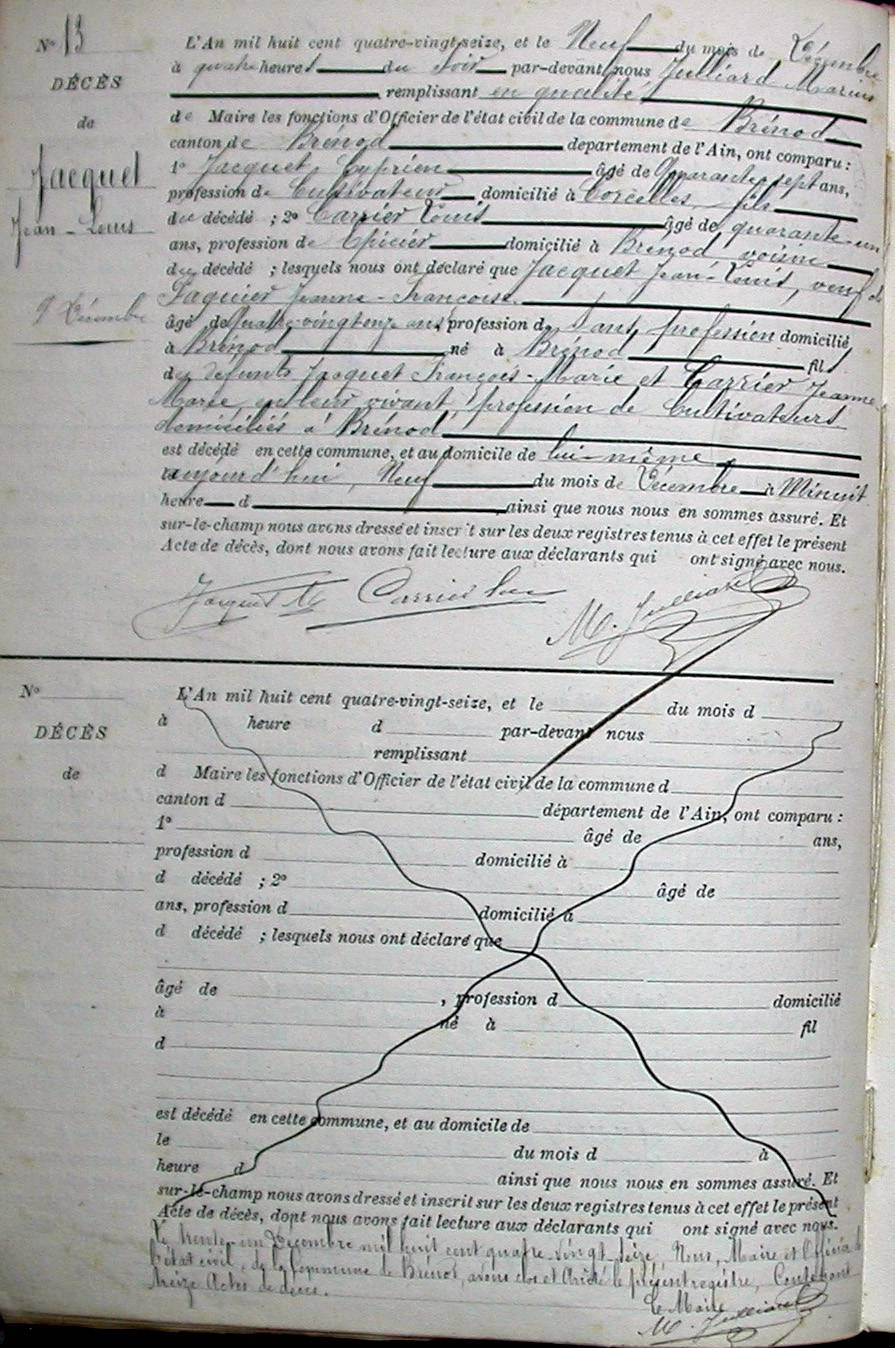 N° 13
DÉCÈS
de
Jacquet
Jean-Louis
9 Décembre
L'An mil huit cent quatre-vingt-seize, et le Neuf du mois de Décembre
à quatre heures du soir par-devant nous Julliard Marius
remplissant en qualité
de Maire les fonctions d'Officier de l'état civil de la commune de Brénod
canton de Brénod département de l'Ain, ont comparu :
1° Jacquet Cyprien âgé de Quarante sept ans,
profession de Cultivateur domicilié à Corcelles, fils
du décédé ; 2° Carrier Louis âgé de quarante-un
ans, profession de Epicier domicilié à Brénod voisin
du décédé ; lesquels nous ont déclaré que Jacquet Jean-Louis, veuf de
Jeanne-Françoise
âgé de Quatre-vingt onze ans, profession de sans profession domicilié
à Brénod né à Brénod fils
des défunts Jacquet François-Marie et Carrier Jeanne
Marie, en leur vivant, profession de Cultivateurs
domiciliés à Brénod
est décédé en cette commune, et au domicile de lui-même
aujourd'hui, Neuf du mois de Décembre à Minuit
heure d ainsi que nous nous en sommes assuré. Et
sur-le-champ nous avons dressé et inscrit sur les deux registres tenus à cet effet le présent
Acte de décès, dont nous avons fait lecture aux déclarants qui ont signé avec nous.
Jacquet Carrier M. Julliard
N°
DÉCÈS
de
L'An mil huit cent quatre-vingt-seize, et le du mois d
à heure d par-devant nous
remplissant
d Maire les fonctions d'Officier de l'état civil de la commune d
canton d département de l'Ain, ont comparu :
1° âgé de ans,
profession d domicilié à
d décédé ; 2° âgé de
ans, profession d domicilié à
d décédé ; lesquels nous ont déclaré que
âgé de , profession d domicilié
à né à fil
d
est décédé en cette commune, et au domicile de
le du mois d à
heure d ainsi que nous nous en sommes assuré. Et
sur-le-champ nous avons dressé et inscrit sur les deux registres tenus à cet effet le présent
Acte de décès, dont nous avons fait lecture aux déclarants qui ont signé avec nous.
Le trente-un Décembre mil huit cent quatre-vingt seize, Nous, Maire et Officier de
l'état civil, de la Commune de Brénod, avons clos et Arrêté le présent registre, Contenant
treize Actes de décès.
Le Maire
M. Julliard